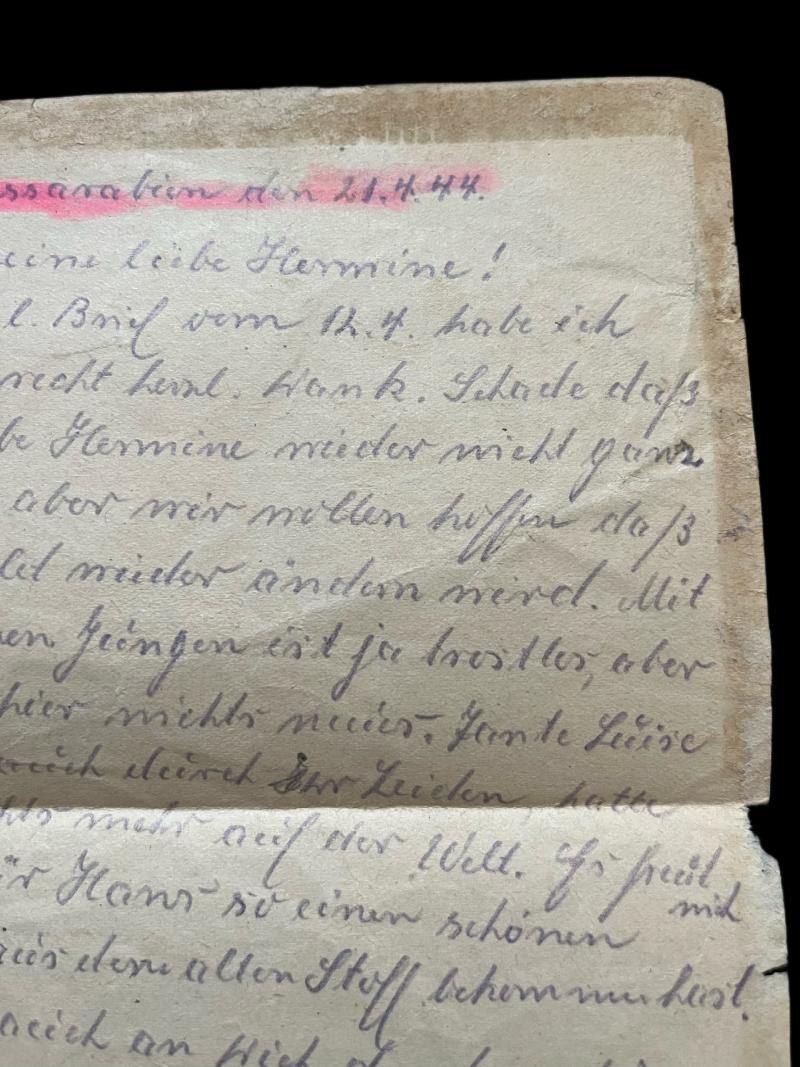 ssarabien den 21.4.44.
eine liebe Hermine!
l. Brief vom 12.4. habe ich
recht herzl. Dank. Schade daß
be Hermine wieder nicht ganz
aber wir wollen hoffen daß
ld wieder ändern wird. Mit
en Jungen ist ja trostlos, aber
hier nichts neues. Tante Luise
auch durch Ihr Leiden, hatte
hts mehr auf der Welt. Es freut
mich
ür Hans so einen schönen
aus dem alten Stoff bekommen hast.
auch an Dich